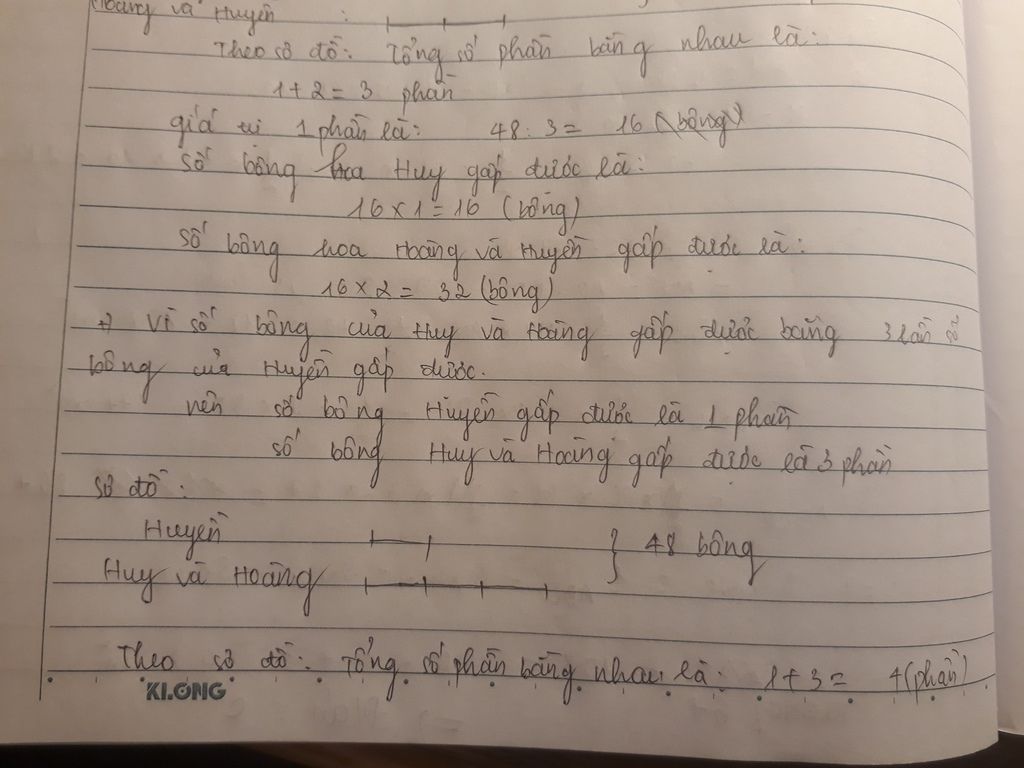 Hoàng và Huyền :
Theo sơ đồ: Tổng số phần bằng nhau là:
1+2 = 3 phần
giá trị 1 phần là: 48 : 3 = 16 (bông)
số bông hoa Huy gấp được là:
16 x 1 = 16 (bông)
số bông hoa Hoàng và Huyền gấp được là:
16 x 2 = 32 (bông)
+) Vì số bông của Huy và Hoàng gấp được bằng 3 lần số
bông của Huyền gấp được.
nên số bông Huyền gấp được là 1 phần
số bông Huy và Hoàng gấp được là 3 phần
sơ đồ:
Huyền } 48 bông
Huy và Hoàng
Theo sơ đồ: Tổng số phần bằng nhau là: 1+3 = 4 (phần)
KLONG